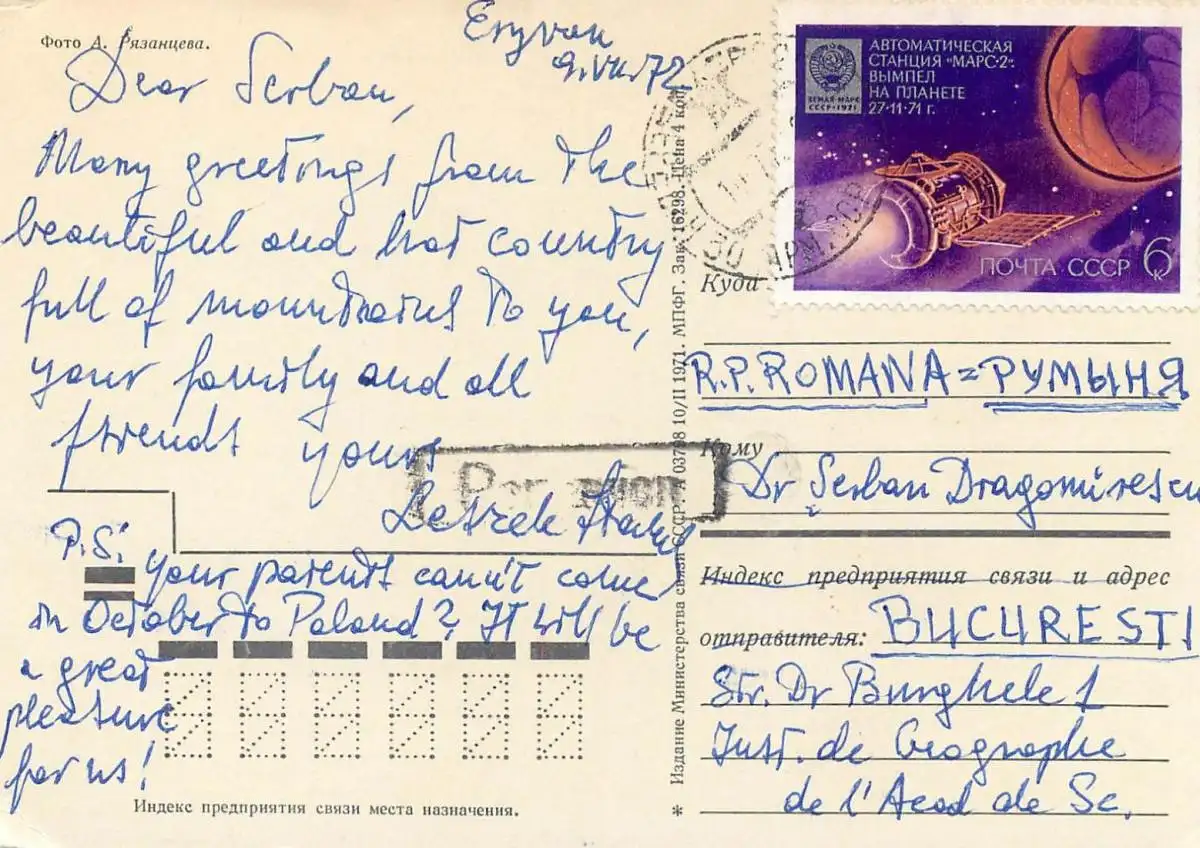 Фото А. Рязанцева.
Eryvan
9.VII.72
Dear Serban,
Many greetings from the
beautiful and hot country
full of mountains to you,
your family and all
friends yours
P.S. your parents can't come
in October to Poland? It will be
a great
pleasure
for us!
Индекс предприятия связи места назначения.
Издание Министерства связи СССР. 03798 10/II 1971. МПФГ. Зак. 16298. Цена 4 коп.
*
АВТОМАТИЧЕСКАЯ
СТАНЦИЯ «МАРС-2».
ВЫМПЕЛ
НА ПЛАНЕТЕ
27·11·71 г.
ЗЕМЛЯ-МАРС
СССР·1971
ПОЧТА СССР 6к
Par avion
Куда
R.P. ROMANA = РУМЫНИЯ
Кому
Dr Şerban Dragomirescu
Индекс предприятия связи и адрес
отправителя:
BUCUREST I
Str. Dr Burghele 1
Inst. de Geographe
de l'Acad de Sc.